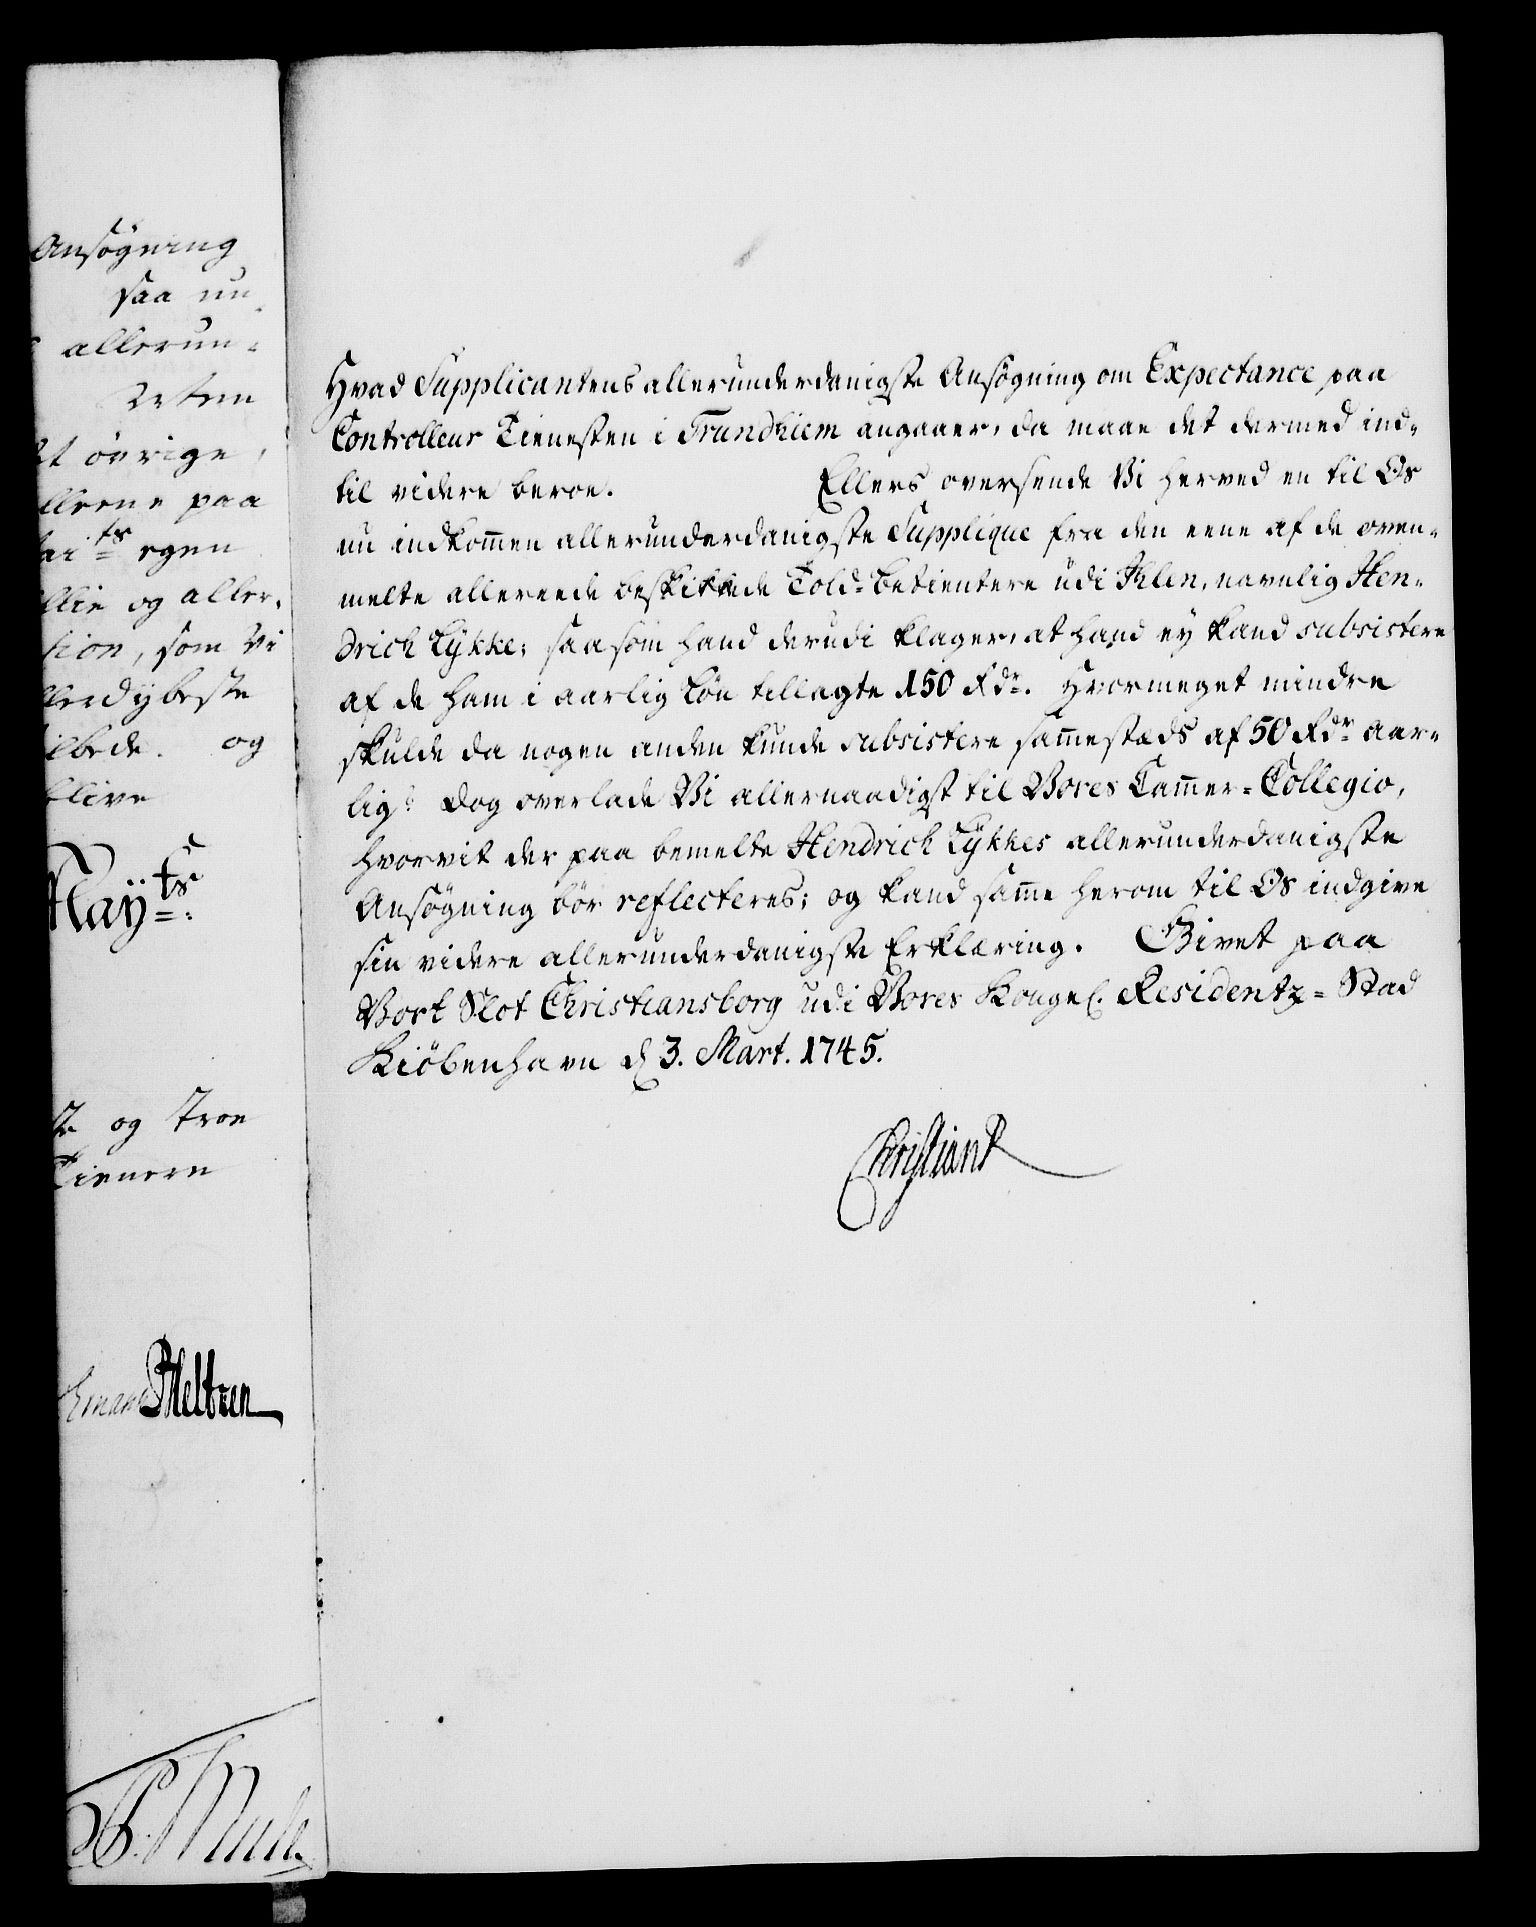 Ansøgning
saa nu
allerun-
dt øvrige,
paa
egen
og aller-
tion, som Vi
allerdybeste
og
blive
May.ts
og Troe
Tienere
Hvad Supplicantens allerunderdanigste Ansøgning om Expectance paa
Controlleur Tienesten i Trundhiem angaaer, da maae det dermed ind-
til videre beroe. Ellers oversende Vi herved en til Os
nu indkom̄en allerunderdanigste Supplique fra den eene af de oven-
melte allereede beskikkede Told-Betientere udi Ihlen, navnlig Hen-
drich Lykke; saasom hand derudi klager, at hand ey kand subsistere
af de ham i aarlig Løn tillagte 150 Rdr. Hvormeget mindre
skulde da nogen anden kunde subsistere sam̄estæds af 50 Rdr aar-
lig? Dog overlade Vi allernaadigst til Vores Cam̄er-Collegio,
hvorvit der paa bemelte Hendrich Lykkes allerunderdanigste
Ansøgning bør reflecteres; og kand sam̄e herom til Os indgive
sin videre allerunderdanigste Erklæring. Givet paa
Vort Slot Christiansborg udi Vores Kongel. Residentz-Stad
Kiøbenhavn d. 3. Mart. 1745.
Christian R